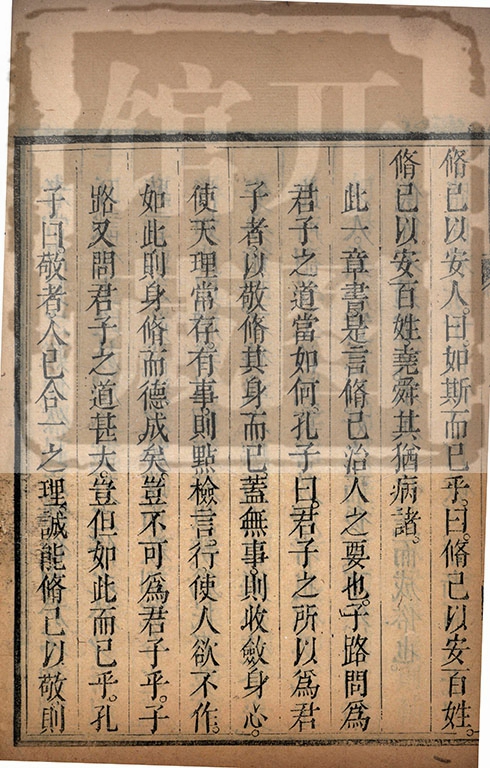 脩己以安人。曰。如斯而已乎。曰。脩己以安百姓。
脩己以安百姓。堯舜其猶病諸。
此一章書。是言脩己治人之要也。子路問爲
君子之道當如何。孔子曰。君子之所以爲君
子者。以敬脩其身而已。蓋無事。則收斂身心。
使天理常存。有事。則點檢言行。使人欲不作。
如此則身脩而德成矣。豈不可爲君子乎。子
路又問君子之道甚大。豈但如此而已乎。孔
子曰。敬者人己合一之理。誠能脩己以敬。則